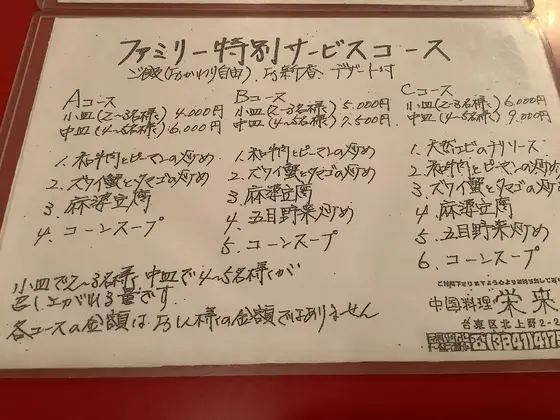 ファミリー特別サービスコース
ご飯(おかわり自由)、お新香、デザート付
Aコース
小皿(2〜3名様) 4.000円
中皿(4〜5名様) 6.000円
1. 和牛肉とピーマンの炒め
2. ズワイ蟹とタマゴの炒め
3. 麻婆豆腐
4. コーンスープ
Bコース
小皿(2〜3名様) 5.000円
中皿(4〜5名様) 7.500円
1. 和牛肉とピーマンの炒め
2. ズワイ蟹とタマゴの炒め
3. 麻婆豆腐
4. 五目野菜炒め
5. コーンスープ
Cコース
小皿(2〜3名様) 6.000円
中皿(4〜5名様) 9.000円
1. 大正エビのチリソース
2. 和牛肉とピーマンの炒め
3. ズワイ蟹とタマゴの炒め
4. 麻婆豆腐
5. 五目野菜炒め
6. コーンスープ
小皿で2〜3名様、中皿で4〜5名様が
召し上がれる量です
各コースの金額はお1人様の金額ではありません
中国料理 栄来
台東区北上野2-2